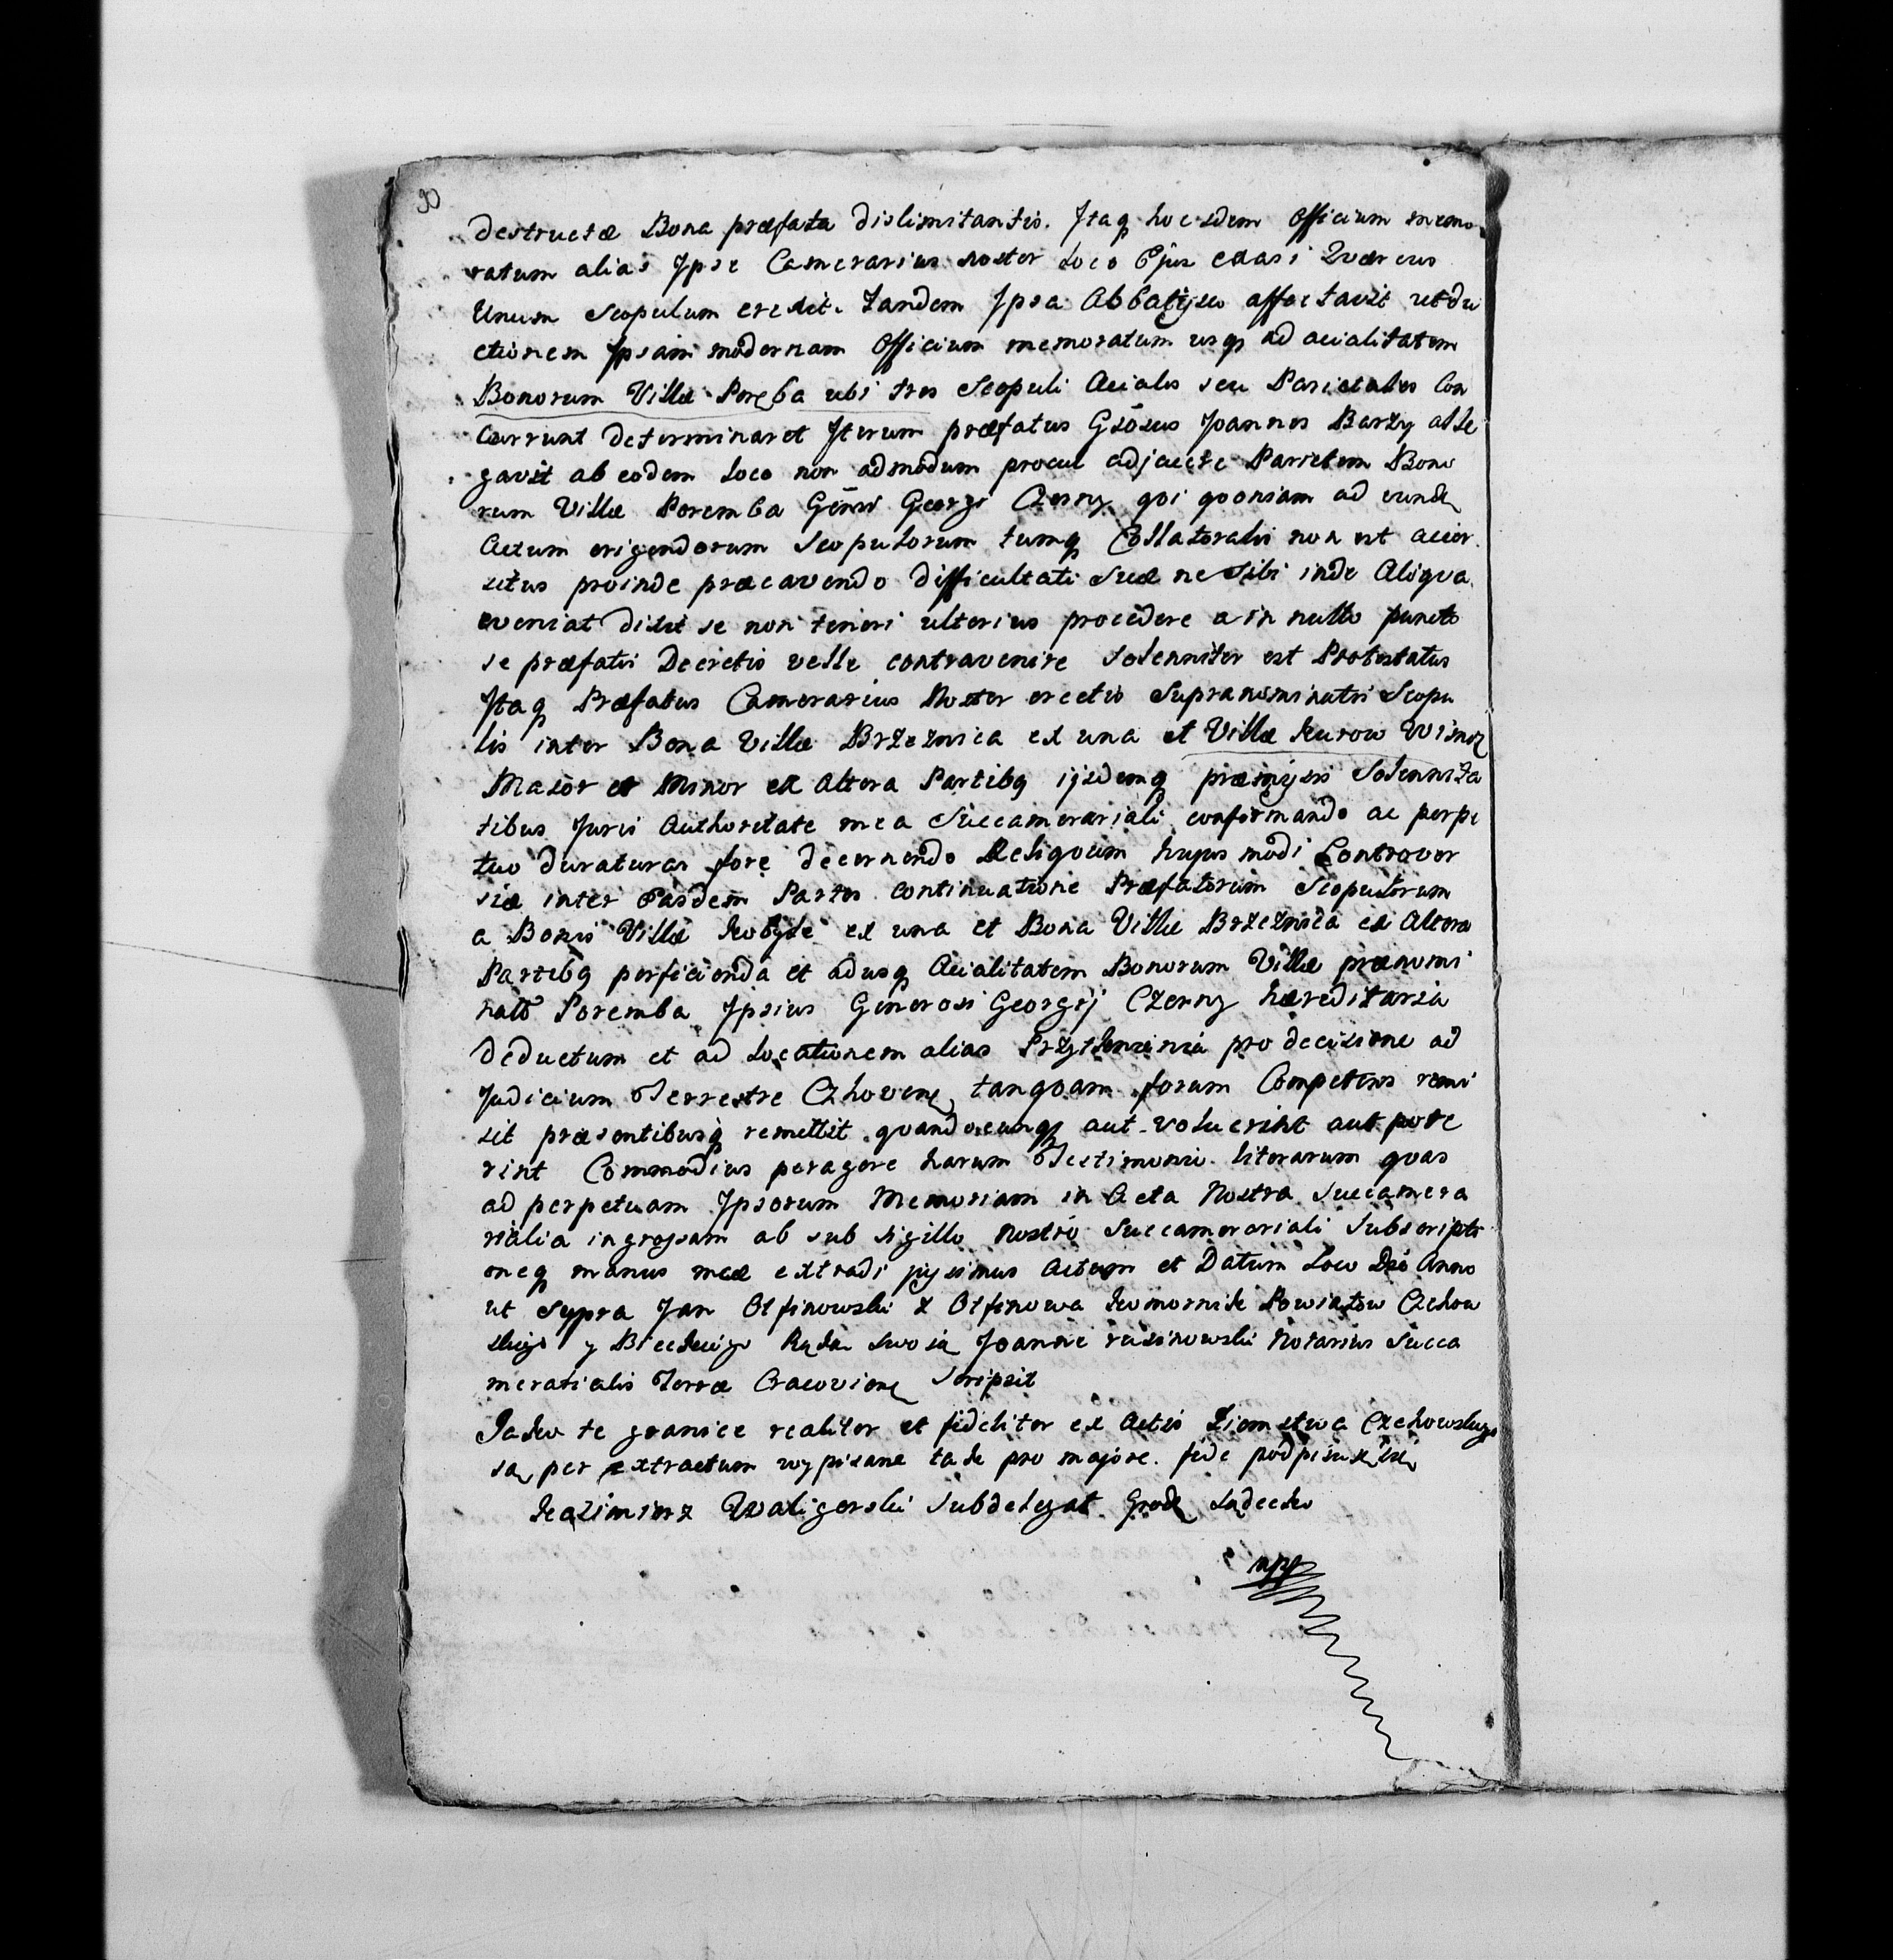 90
destructæ Bona præfata dislimitantis. Itaq hoc idem Officium memo
ratum alias Ipse Camerarius noster loco Ejus exasi Quercus
Unum Scopulum erexit. Tandem Ipsa Abbatissa affectavit ut du
ctionem Ipsam modernam Officium memoratum usq ad acialitatem
Bonorum Villæ Poręba ubi tres Scopuli Aciales seu Parietales Con
currunt determinaret Iterum præfatus Gsōsus Joannes Barzy alle
gavit ab eodem loco non admodum procul adjacere Parietem Bono
rum Villæ Poremba Gēnsi Georgi Czerny qvi qvoniam ad eund
Actum erigendorum Scopulorum tumq Collateralis non est accer
situs proinde præcavendo difficultati Suæ ne Sibi inde Aliqva
eveniat dixit se non teneri ulterius procedere a in nullo puncto
se præfatis Decretis velle contravenire Solenniter est Protestatus
Itaq Præfatus Camerarius Noster erectis Supranominatis Scopu
lis inter Bona Villæ Brzeznica ex una et Villæ Kurow Wisnicz
Maior et Minor ex Altera Partibq ijsdemq præmissis Solennita
tibus Juris Authoritate mea Succamerariali confirmando ac perpe
tuo duraturas fore decernendo Reliqvum hujus modi Controver
siæ inter Easdem Partes continuatione Præfatorum Scopulorum
a Bonis Villæ Kobyle ex una et Bona Villæ Brzeznica ex Altera
Partibq perficienda et adusq Acialitatem Bonorum Villæ prænomi
nato Poremba Ipsius Generosi Georgij Czerny hæreditaria
deductum et ad locationem alias pro decisione ad
Judicium Terrestre Czhoviens tanqvam forum Competens remi
sit præsentibusq remittit qvandocunq aut voluerint aut pote
rint Commodius peragere harum Testimonio literarum qvas
ad perpetuam Ipsorum Memoriam in Acta Nostra Succamera
rialia ingrossam ab sub sigillo nostro Succamerariali Subscripti
oneq manus meæ extradi jussimus Actum et Datum Loco Die Anno
ut Sypra Jan Olfinowski z Olfinowa Komornik Powiatow Czchow
skiego y Bieckiego Ręką swoią Joanne rusinowski Notarius Succa
merarialis Terræ Cracoviens Scripsit
Jako te granice realiter et fideliter ex Actis Ziemstwa Czchowskigo
są per extractum wypisane tak pro majore fide podpisuie się
Kazimierz Waligorski Subdelegat Grodz Sądecki
mpp